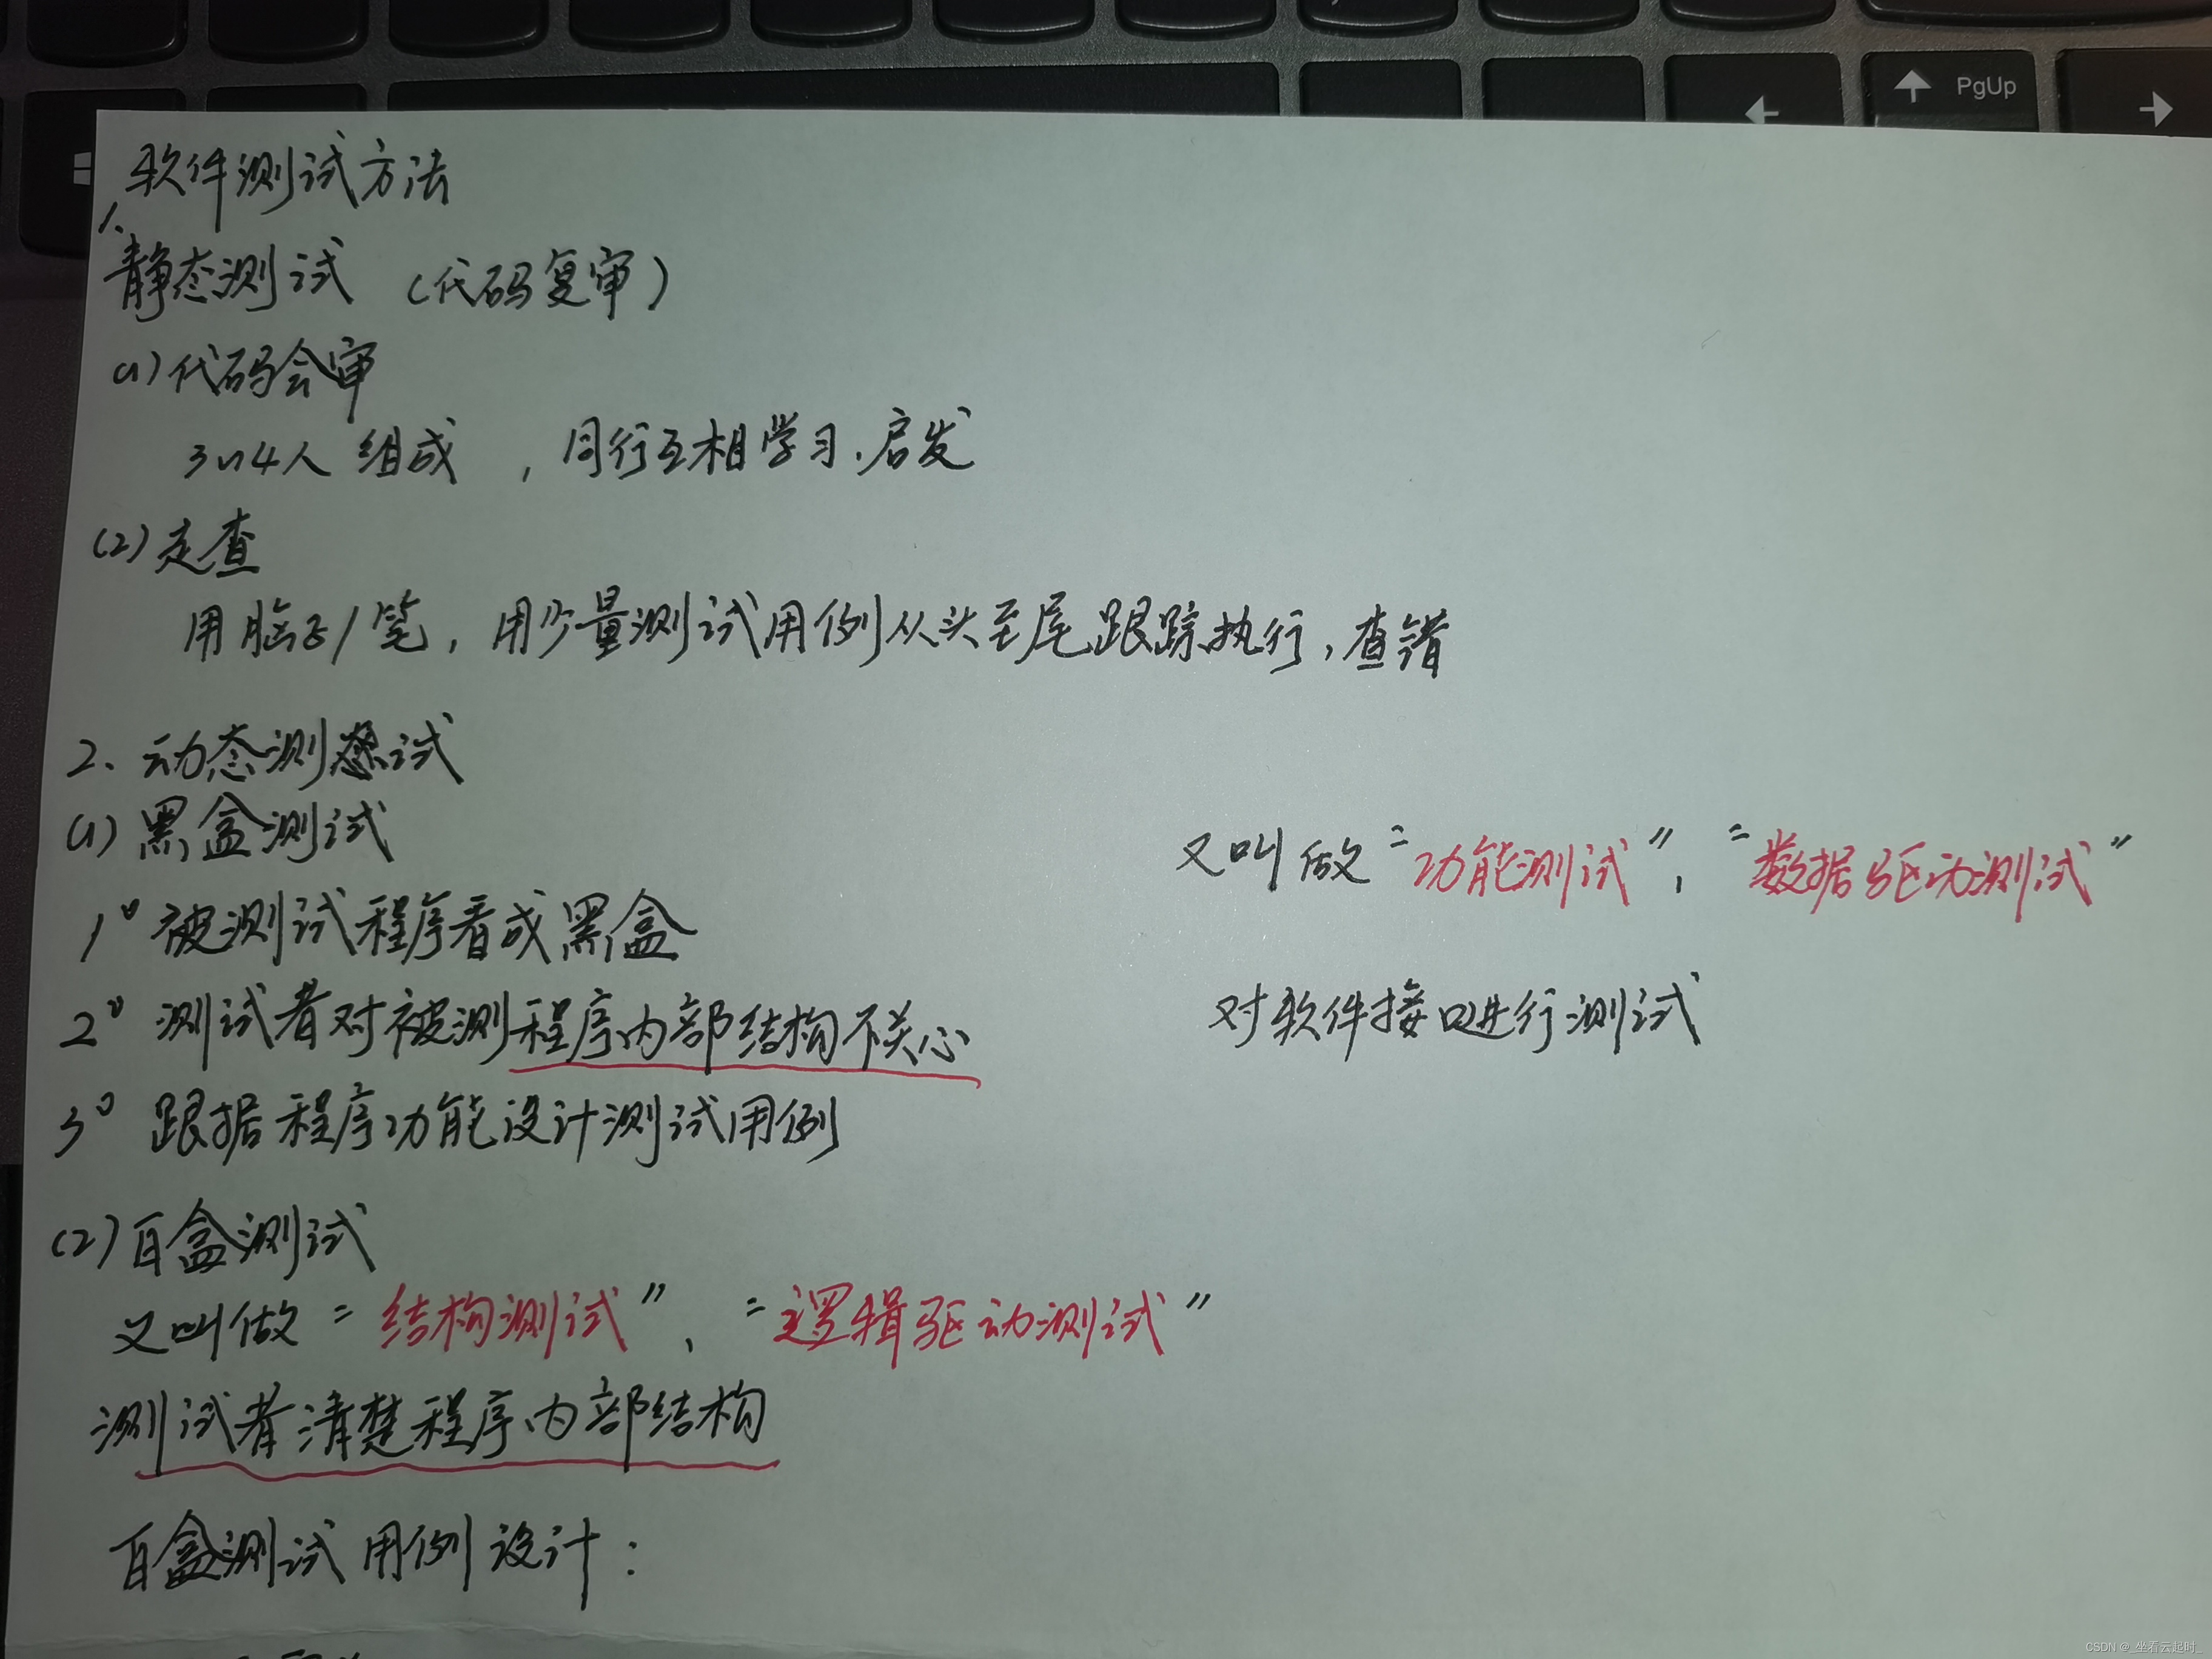 PgUp
软件测试方法
1、
静态测试 (代码复审)
(1) 代码会审
3~4人 组成 , 同行互相学习、启发
(2) 走查
用脑子/笔, 用少量测试用例从头至尾跟踪执行, 查错
2、动态测试
(1) 黑盒测试
又叫做“功能测试”, “数据驱动测试”
1° 被测试程序看成黑盒
2° 测试者对被测程序内部结构不关心
对软件接口进行测试
3° 跟据程序功能设计测试用例
(2) 白盒测试
又叫做“结构测试”, “逻辑驱动测试”
测试者清楚程序内部结构
白盒测试用例设计:
CSDN @_坐看云起时_